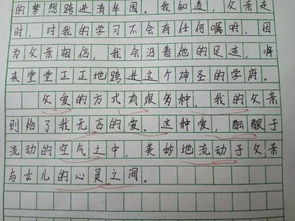 的梦想跨进清华园。我知道,父亲走
时,对我的学习不会有任何嘱咐,因
为父亲相信,我会沿着他的足迹,将
来堂堂正正地跨进这个神圣的学府。
父爱的方式有很多种,我的父亲
则给了我无言的爱。这种爱,酝酿于
流动的空气之中,美妙地流动于父亲
与女儿的心灵之间。